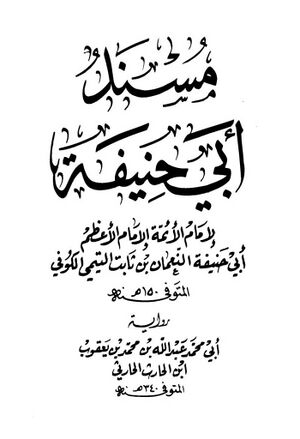 مسند
أبي حنيفة
لإمام الأئمة الإمام الأعظم
أبي حنيفة النعمان بن ثابت التيمي الكوفي
المتوفى ١٥٠هـ
رواية
أبي محمد عبد الله بن محمد بن يعقوب
ابن الحارث الحارثي
المتوفى ٣٤٠هـ